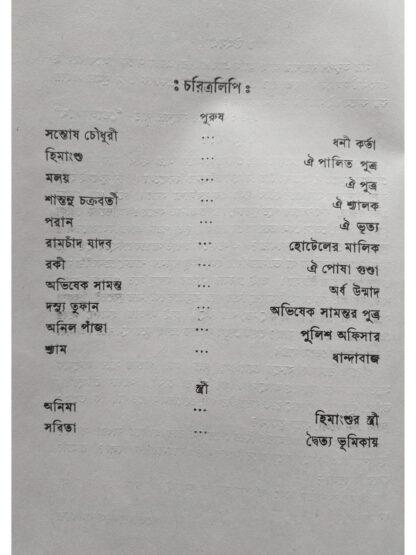 : চরিত্রলিপি :
পুরুষ
সন্তোষ চৌধুরী ... ধনী কর্তা
হিমাংশু ... ঐ পালিত পুত্র
মলয় ... ঐ পুত্র
শান্তনু চক্রবর্তী ... ঐ শ্যালক
পরান ... ঐ ভৃত্য
রামচাঁদ যাদব ... হোটেলের মালিক
রকী ... ঐ পোষা গুণ্ডা
অভিষেক সামন্ত ... অর্ধ উন্মাদ
দস্যু তুফান ... অভিষেক সামন্তর পুত্র
অনিল পাঁজা ... পুলিশ অফিসার
শ্যাম ... ধান্দাবাজ
স্ত্রী
অনিমা ... হিমাংশুর স্ত্রী
সবিতা ... দ্বৈত্য ভূমিকায়